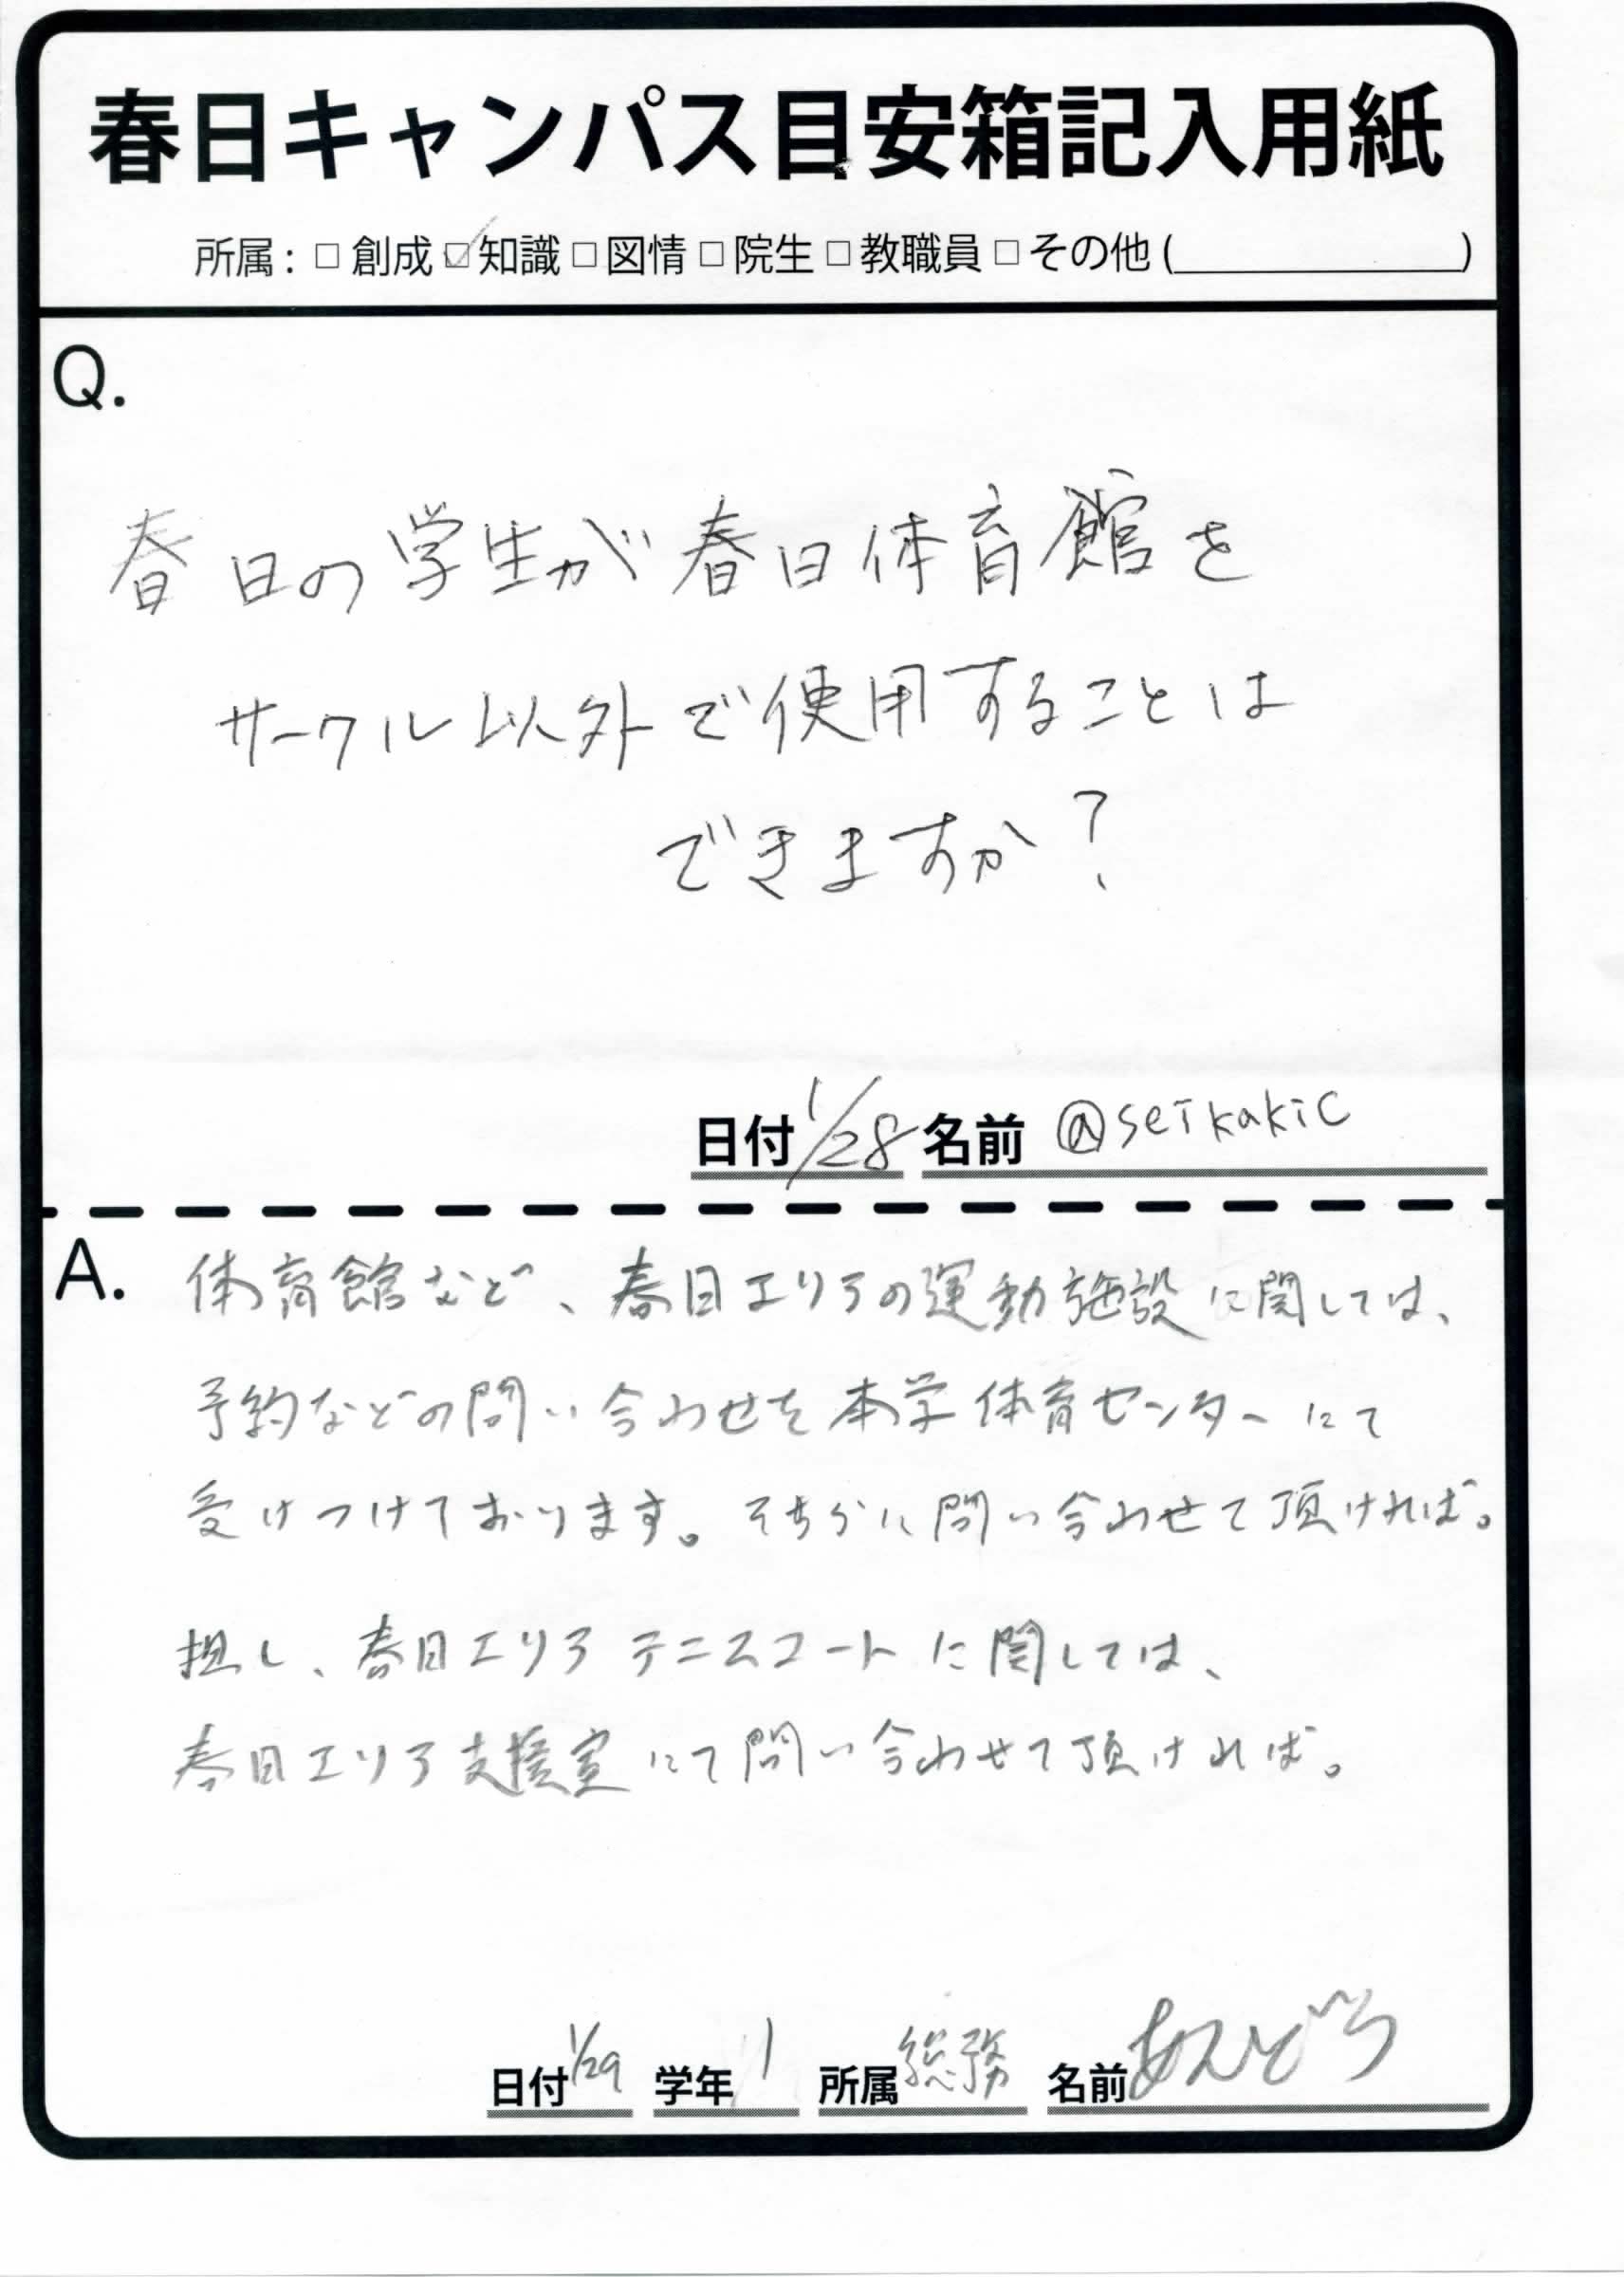 春日キャンパス目安箱記入用紙
所属：□ 創成 ☑ 知識 □ 図情 □ 院生 □ 教職員 □ その他 (＿＿＿＿＿＿＿)
Q.
春日の学生が春日体育館を
サークル以外で使用することは
できますか？
日付 1/28 名前 @seikakic
A. 体育館など、春日エリアの運動施設に関しては、
予約などの問い合わせを本学体育センターにて
受けつけております。そちらに問い合わせて頂ければ。
担し、春日エリアテニスコートに関しては、
春日エリア支援室にて問い合わせて頂ければ。
日付 1/29 学年 1 所属 総務 名前 あんどう